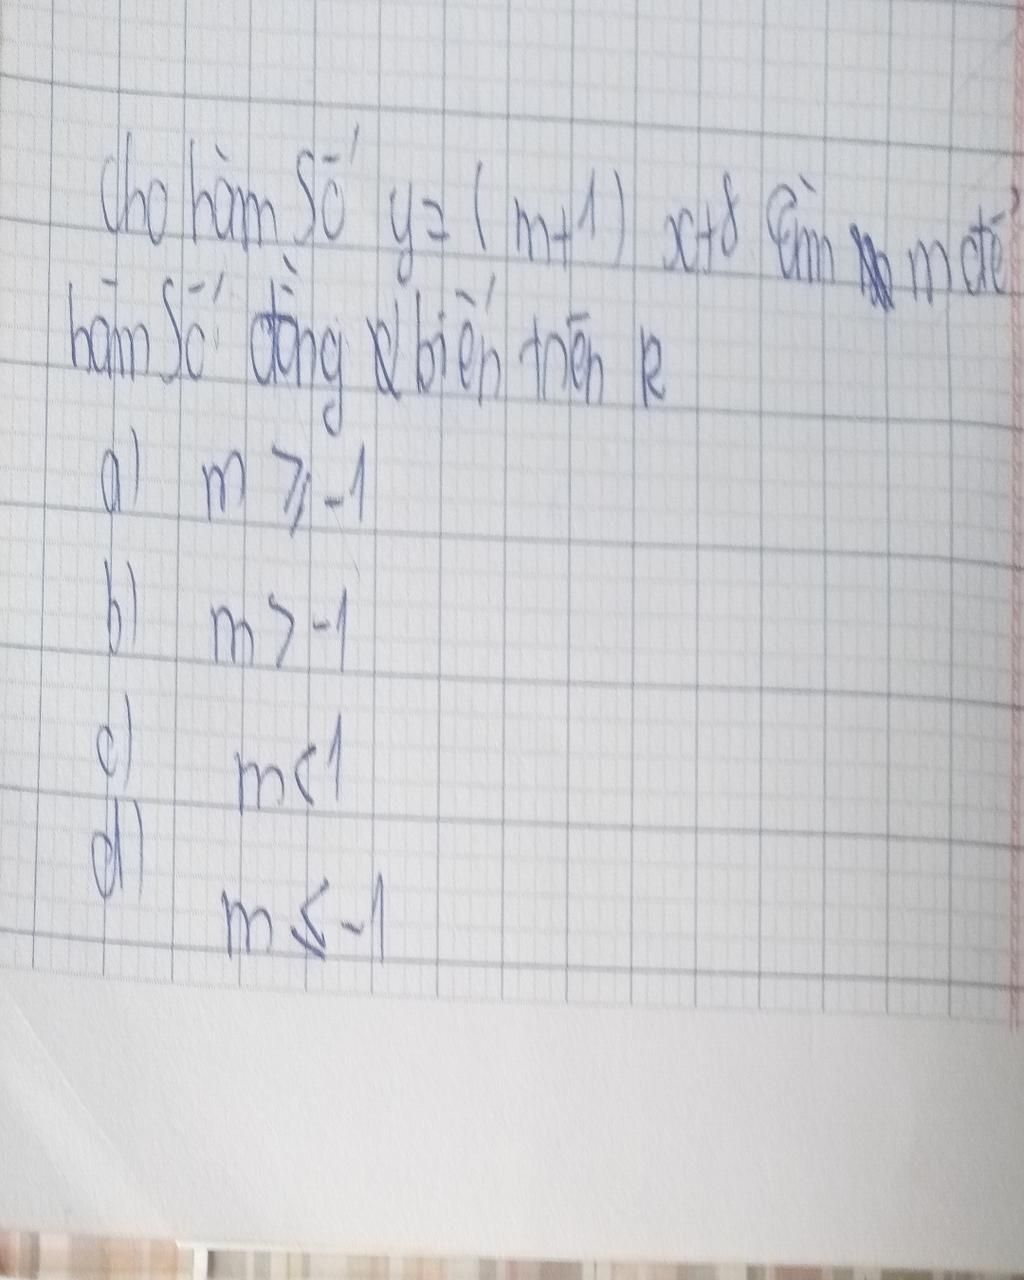 Cho hàm số y = (m+1) x+8 tìm m để
hàm số đồng biến trên R
a) m ⩾ -1
b) m > -1
c) m < 1
d)
m ⩽ -1